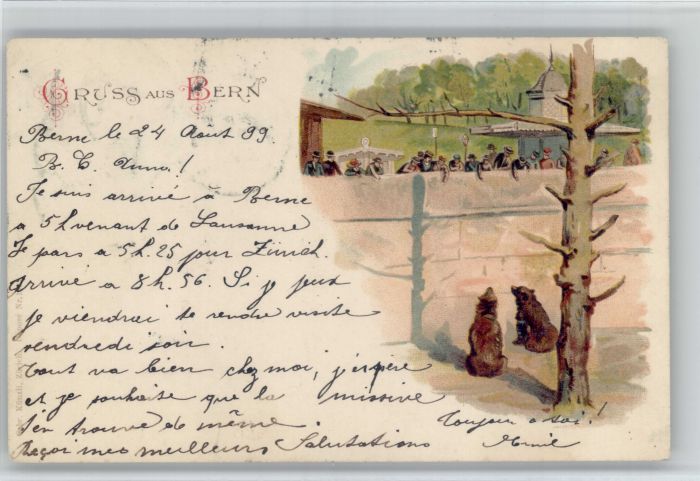 GRUSS AUS BERN
Berne le 24 Août 99.
B. C. Anna!
Je suis arrivé à Berne
a 5 h venant de Lausanne
Je pars a 5 h. 25 pour Zürich.
Arrive a 8 h. 56. Si je peux
je viendrai te rendre visite
vendredi soir.
Tout va bien chez moi, j'espère
et je souhaite que la missive
t'en trouve de même.
Reçoi mes meilleurs Salutations
Toujour a toi!
Emile
Künzli, Zürich